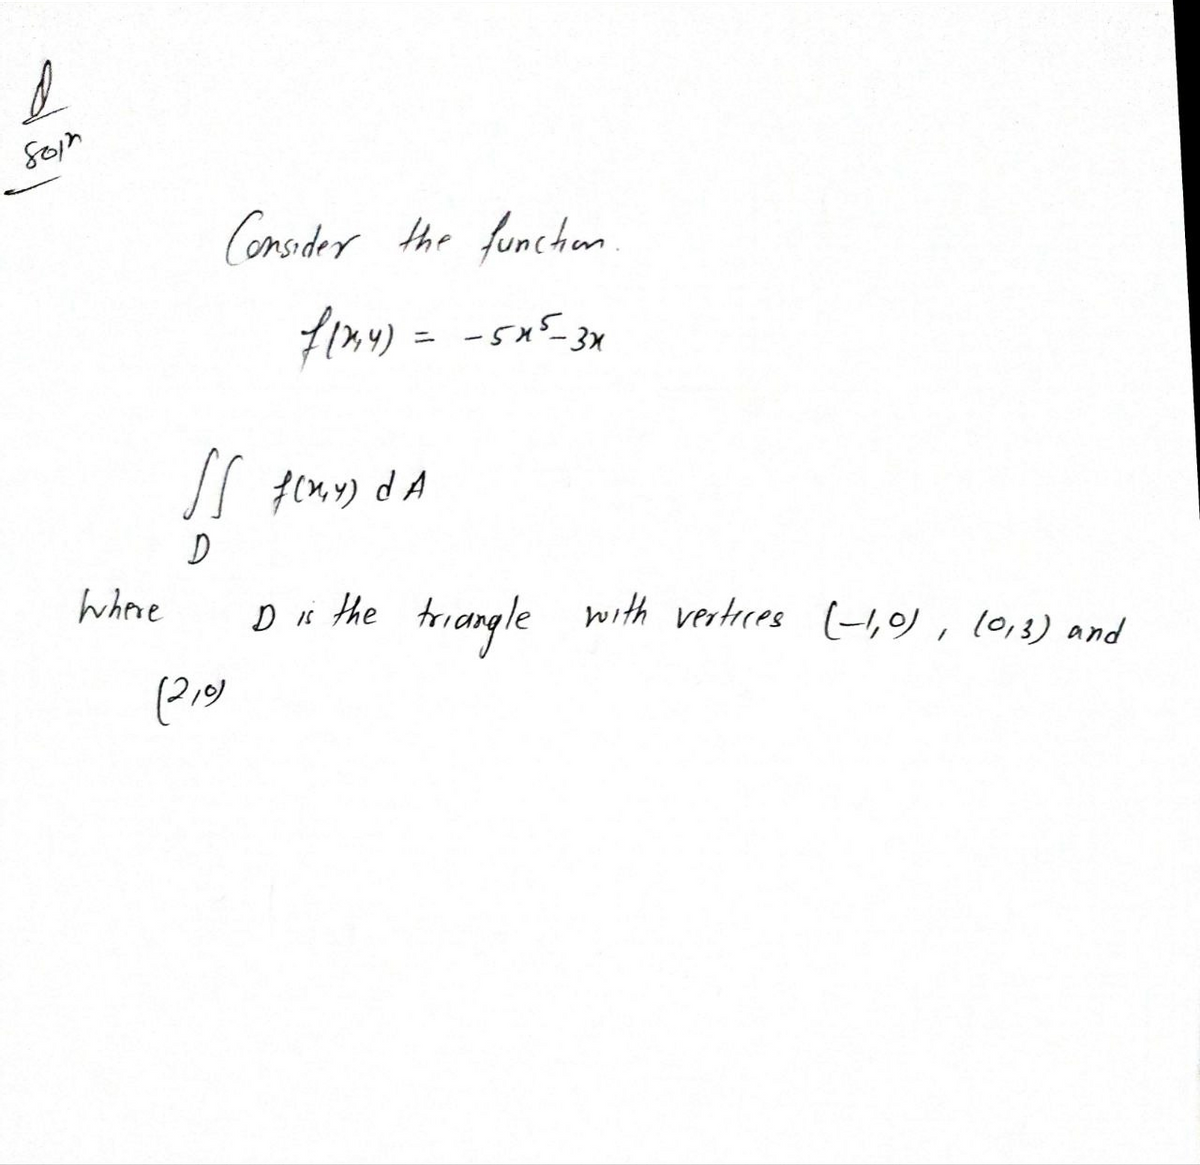 Solⁿ
Consider the function.
f(x,y) = -5x⁵-3x
∬ f(x,y) dA
D
Where D is the triangle with vertices (-1,0), (0,3) and
(2,0)